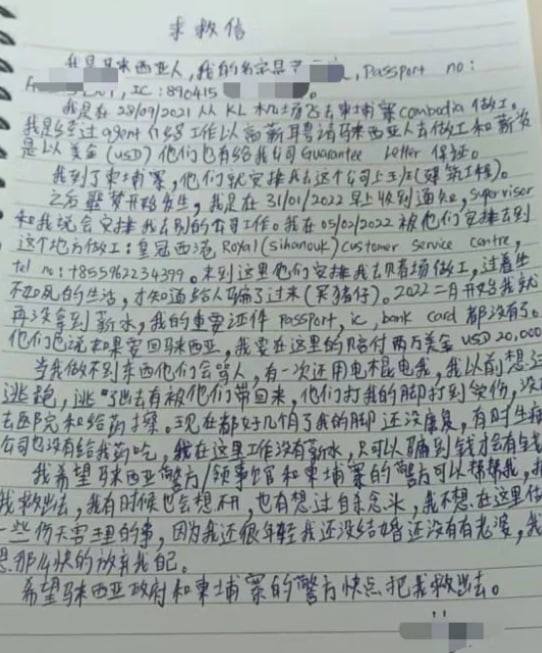 求救信
我是马来西亚人，我的名字是 , Passport no:
, IC: 890415
我是在 28/09/2021 从 KL 机场飞去柬埔寨 Combodia 做工。
我是经过 agent 介绍工作以高薪聘请马来西亚人去做工和薪资
是以美金 (USD) 他们也有给我公司 Guarantee Letter 保证。
我到了柬埔寨，他们就安排我去这个公司上班(建筑工程)。
之后噩梦开始发生，我是在 31/01/2022 早上收到通知，Supervisor
和我说会安排我去别的公司工作。我在 05/02/2022 被他们安排去到
这个地方做工：皇冠西港 Royal (Sihanouk) Customer Service Centre,
tel no: +855962234399。来到这里他们安排我去赌场做工，过着生
不如死的生活，才知道给人骗了过来(卖猪仔)。2022 二月开始我就
再没拿到薪水，我的重要证件 passport, ic, bank card 都没有了。
他们也说如果要回马来西亚，我要在这里的赔付两万美金 USD 20,000
当我做不到东西他们会骂人，有一次还用电棍电我，我以前想过
逃跑，逃 出去有被他们带回来，他们打我的脚打到受伤，没
去医院和给药擦。现在都好几个月了我的脚还没康复，有时生病
公司也没有给我药吃，我在这里工作没有薪水，只可以骗到钱才会有钱
我希望马来西亚警方/领事馆和柬埔寨的警方可以帮帮我，把
我救出去，我有时候也会想不开，也有想过自杀念头，我不想在这里做
一些伤天害理的事，因为我还很年轻我还没结婚还没有老婆，我
想那么快的放弃我自己。
希望马来西亚政府和柬埔寨的警方快点把我救出去。